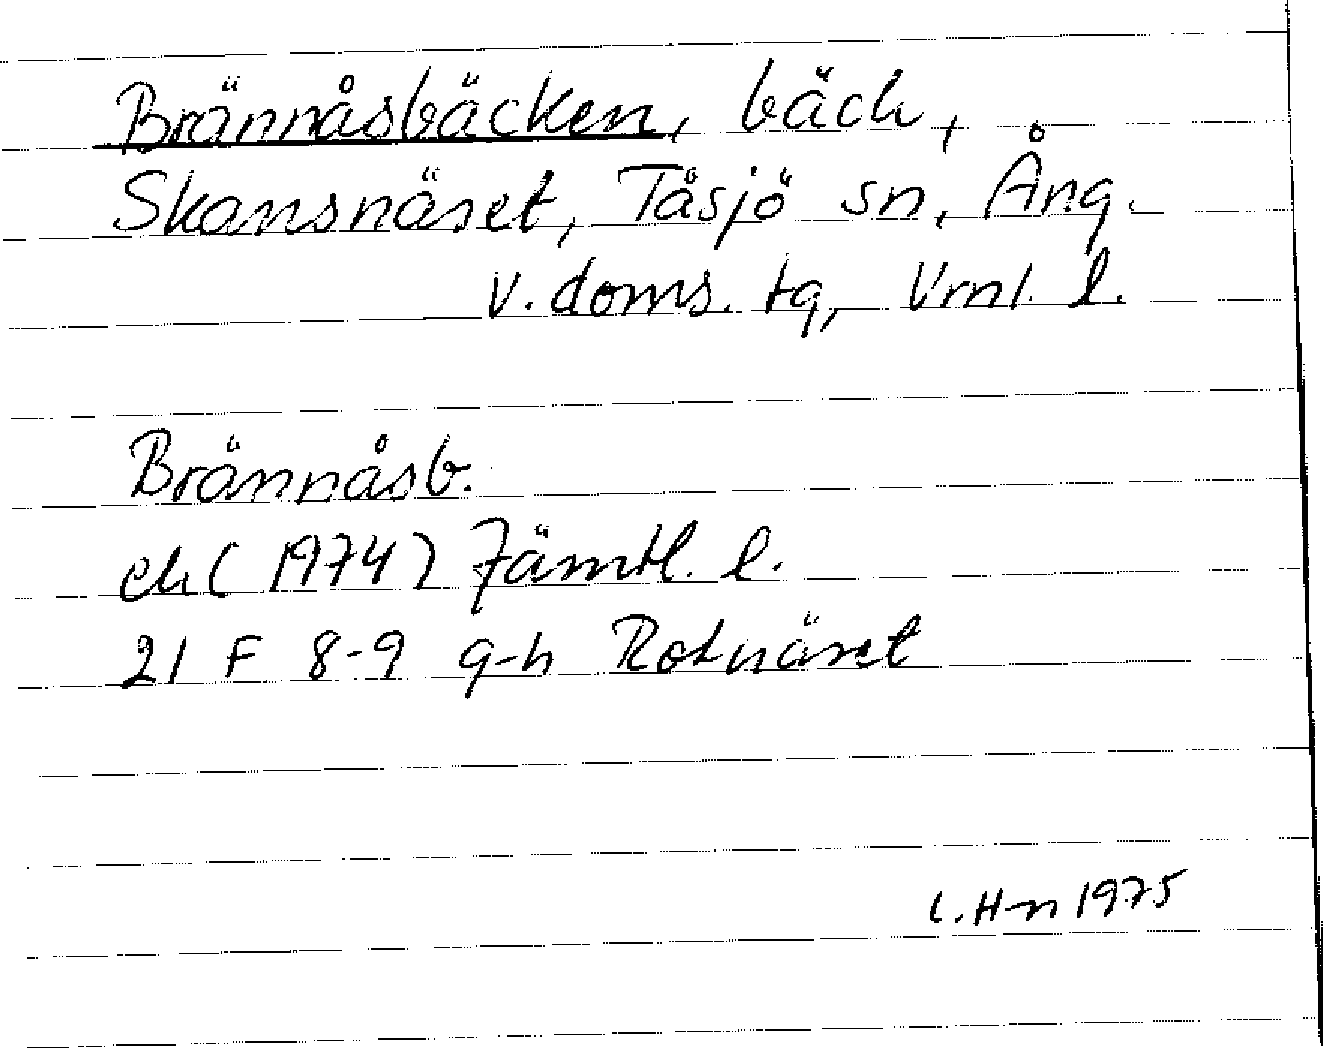 Brännåsbäcken, bäck,
Skansnäset, Tåsjö sn, Ång.
v. doms. tg, Vrnl. l.
Brännåsb.
ek (1974) Jämtl. l.
21 F 8-9 g-h Rotnäset
C. H-n 1975